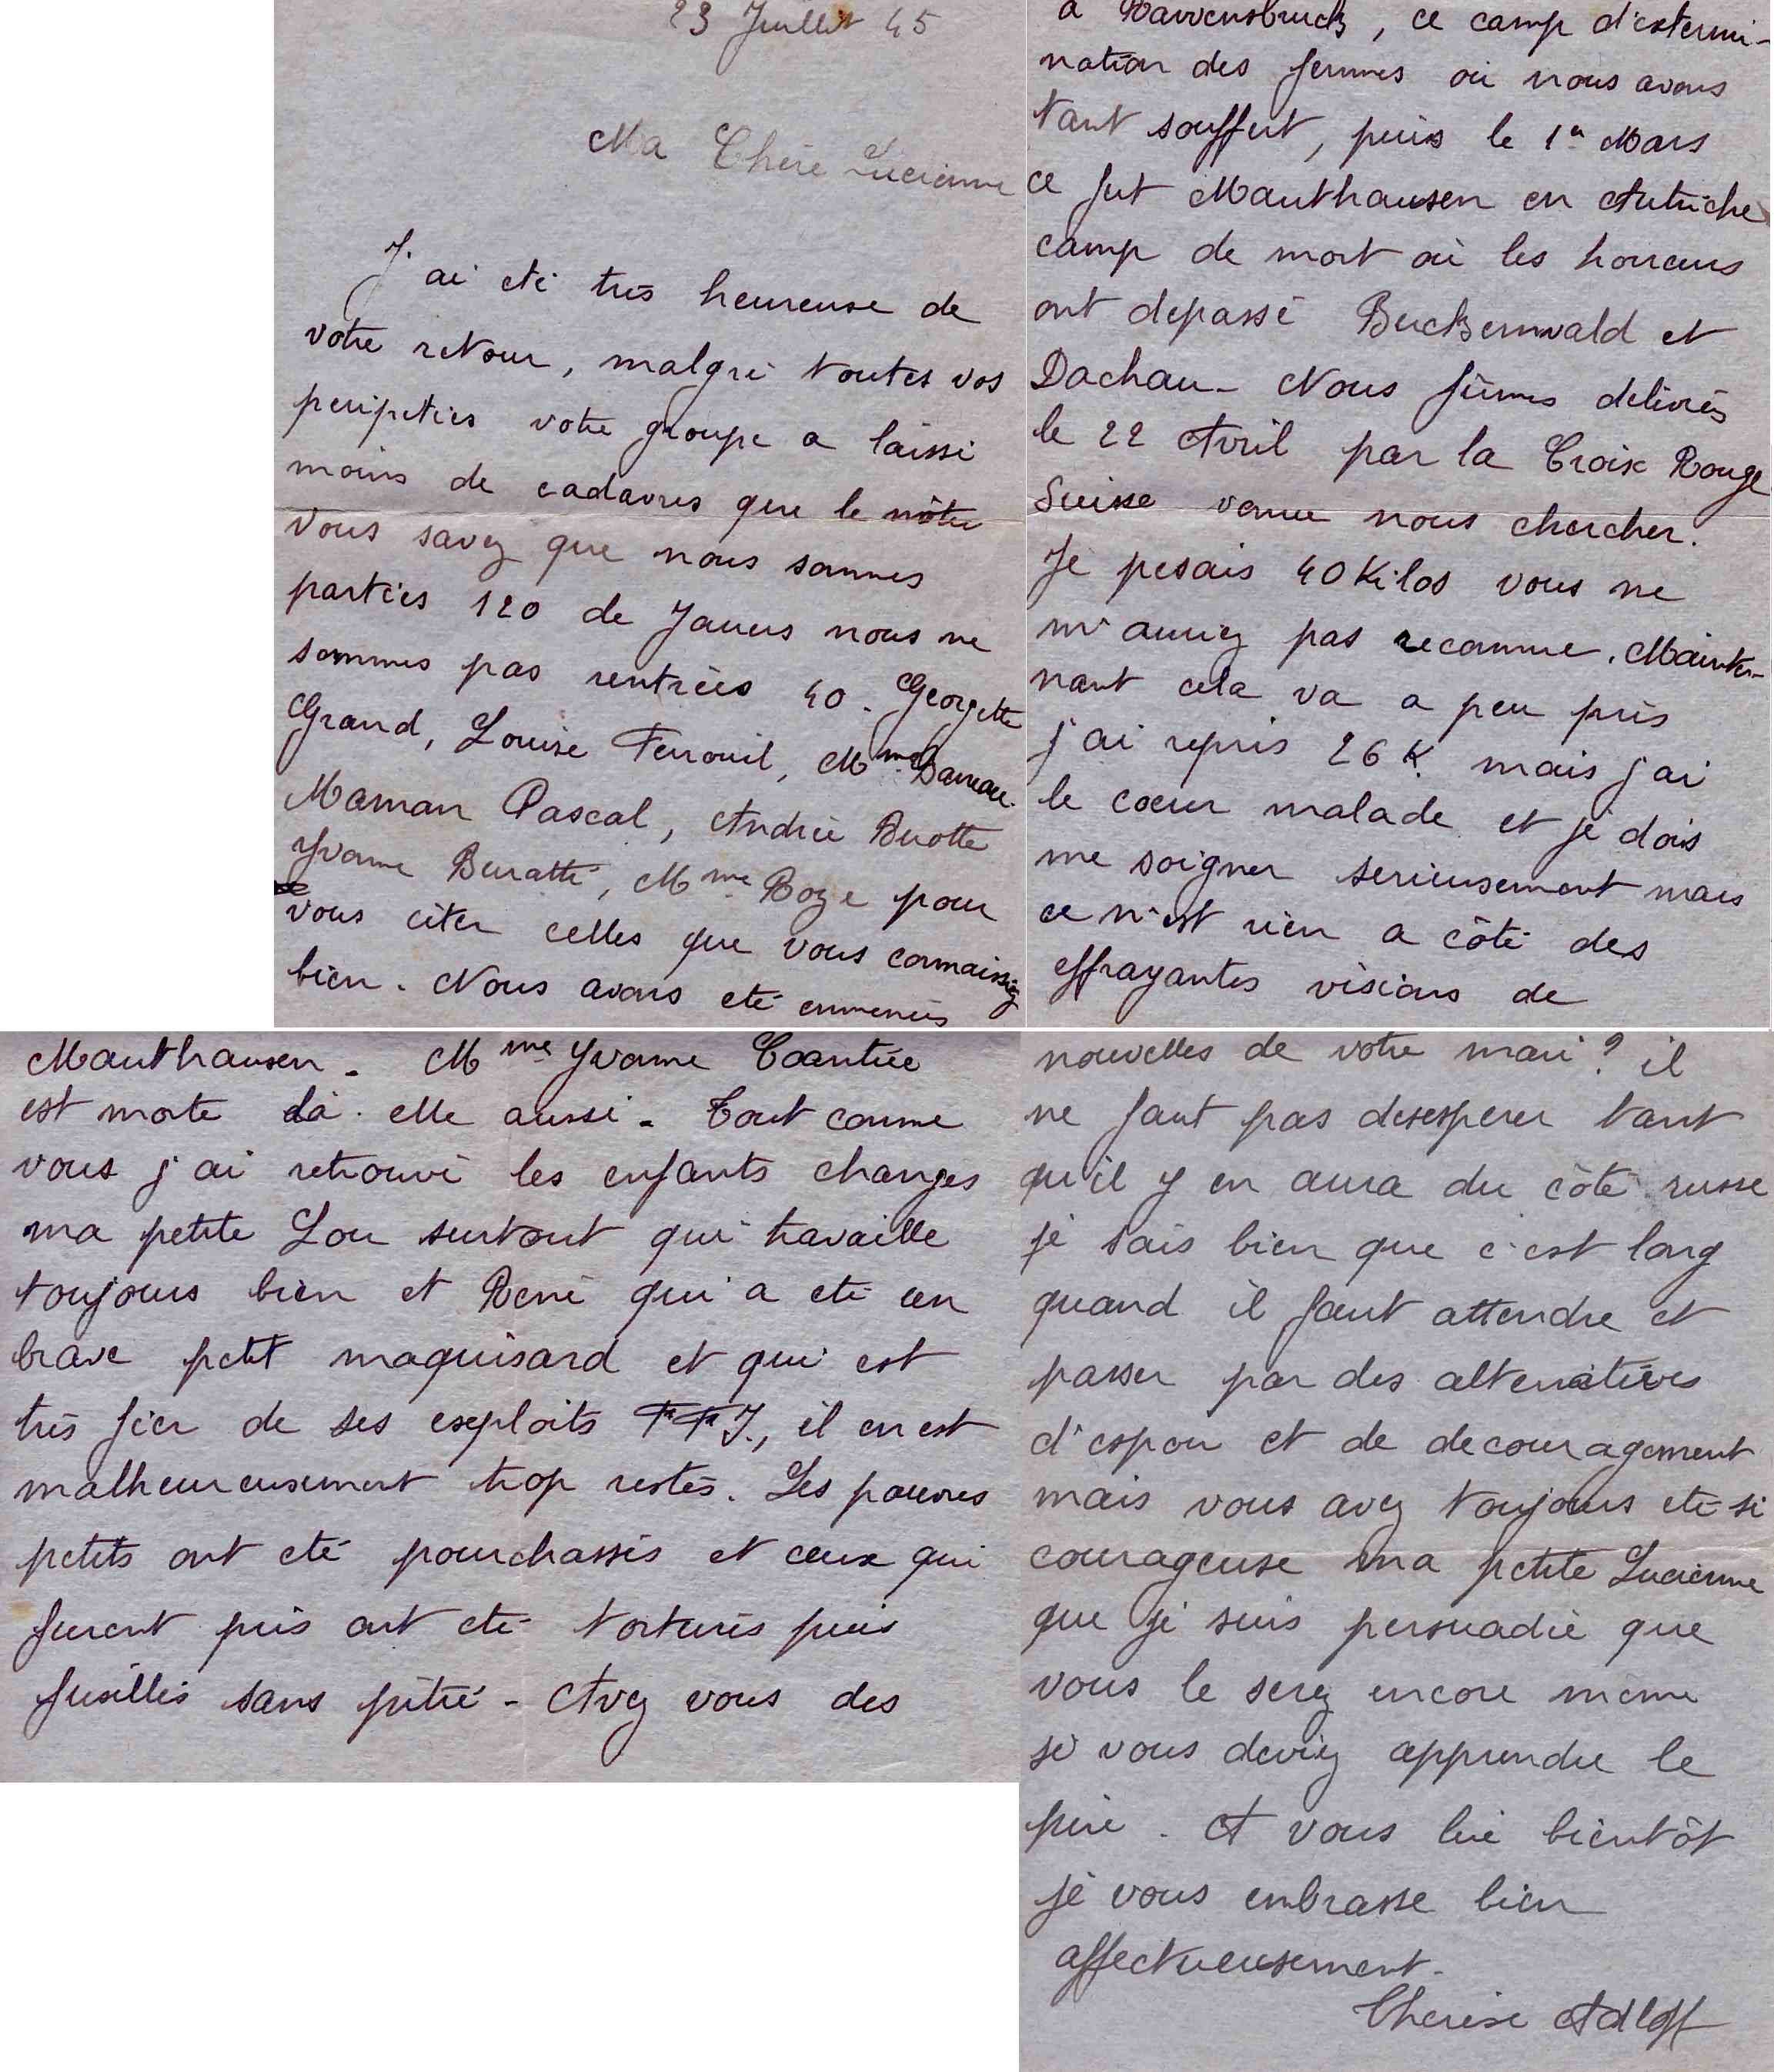 23 Juillet 45
Ma Chère Lucienne
J'ai eté très heureuse de
votre retour, malgré toutes vos
peripeties votre groupe a laissé
moins de cadavres que le nôtre
vous savez que nous sommes
parties 120 de Jauers nous ne
sommes pas rentrées 40. Georgette
Grand, Louise Ferrouil, Mme
Maman Pascal, Andrée Buotte
Yvonne Buratté, Mme Roze pour
vous citer celles que vous connaissiez
bien. Nous avons eté emmenées
a Ravvensbruck, ce camp d'extermi-
nation des femmes où nous avons
tant souffert, puis le 1er Mars
ce fut Mauthausen en Autriche
camp de mort où les horreurs
ont depassé Buckenwald et
Dachau - Nous fûmes délivrés
le 22 Avril par la Croix Rouge
Suisse venue nous chercher.
Je pesais 40 Kilos vous ne
m'auriez pas reconnue. Mainte-
nant cela va a peu près
j'ai repris 26 K. mais j'ai
le coeur malade et je dois
me soigner serieusement mais
ce n'est rien a côté des
effrayantes visions de
Mauthausen - Mme Yvonne
est morte là elle aussi - Tout comme
vous j'ai retrouvé les enfants changes
ma petite Lou surtout qui travaille
toujours bien et René qui a eté un
brave petit maquisard et qui est
très fier de ses exploits FFI., il en est
malheureusement trop restés. Les pauvres
petits ont eté pourchassés et ceux qui
furent pris ont eté torturés puis
fusillés sans pitié - Avez vous des
nouvelles de votre mari? il
ne faut pas desesperer tant
qu'il y en aura du côté russe
je sais bien que c'est long
quand il faut attendre et
passer par des alternatives
d'espoir et de decouragement
mais vous avez toujours eté si
courageuse ma petite Lucienne
que je suis persuadée que
vous le serez encore même
si vous deviez apprendre le
pire. A vous lire bientôt
je vous embrasse bien
affectueusement.
Therese Adloff